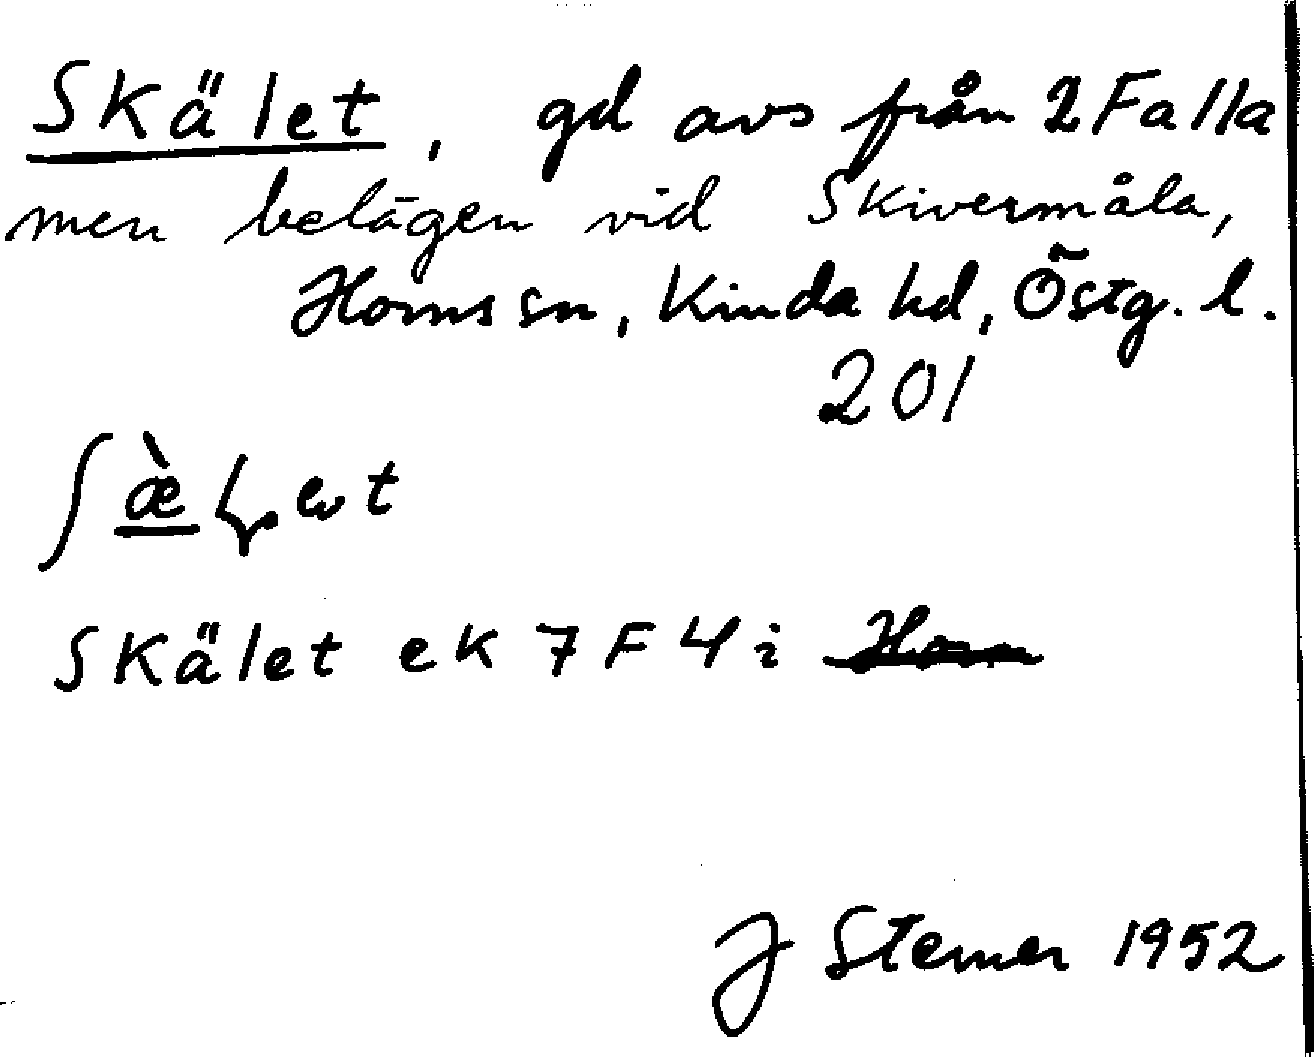 Skälet, gd avs från 2 Falla
men belägen vid Skivermåla,
Horns sn, Kinda hd, Östg. l.
201
Skälet ek 7F4i Horn
J Sterner 1952